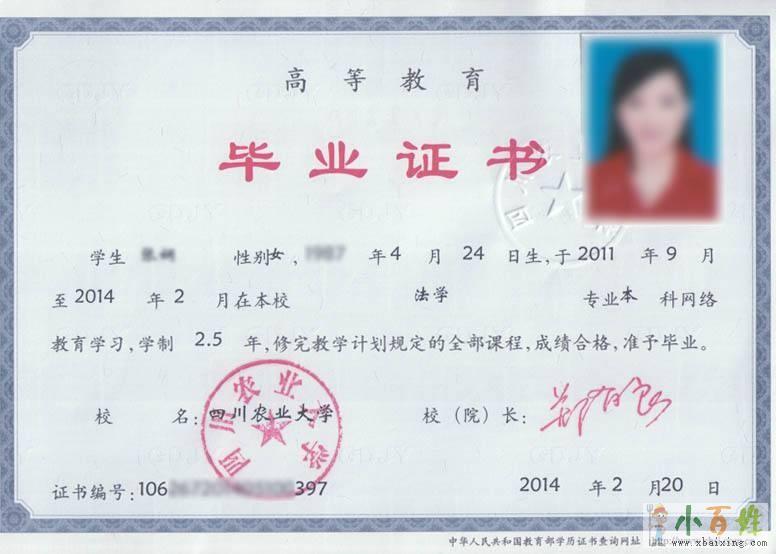 高等教育
毕业证书
学生 性别女, 年4月24日生,于2011年9月
至2014年2月在本校 法学 专业本科网络
教育学习,学制 2.5 年,修完教学计划规定的全部课程,成绩合格,准予毕业。
校 名:四川农业大学 校(院)长:
四川农业大学
证书编号:106 397 2014年2月20日
中华人民共和国教育部学历证书查询网址
小百姓
www.xbaixing.com